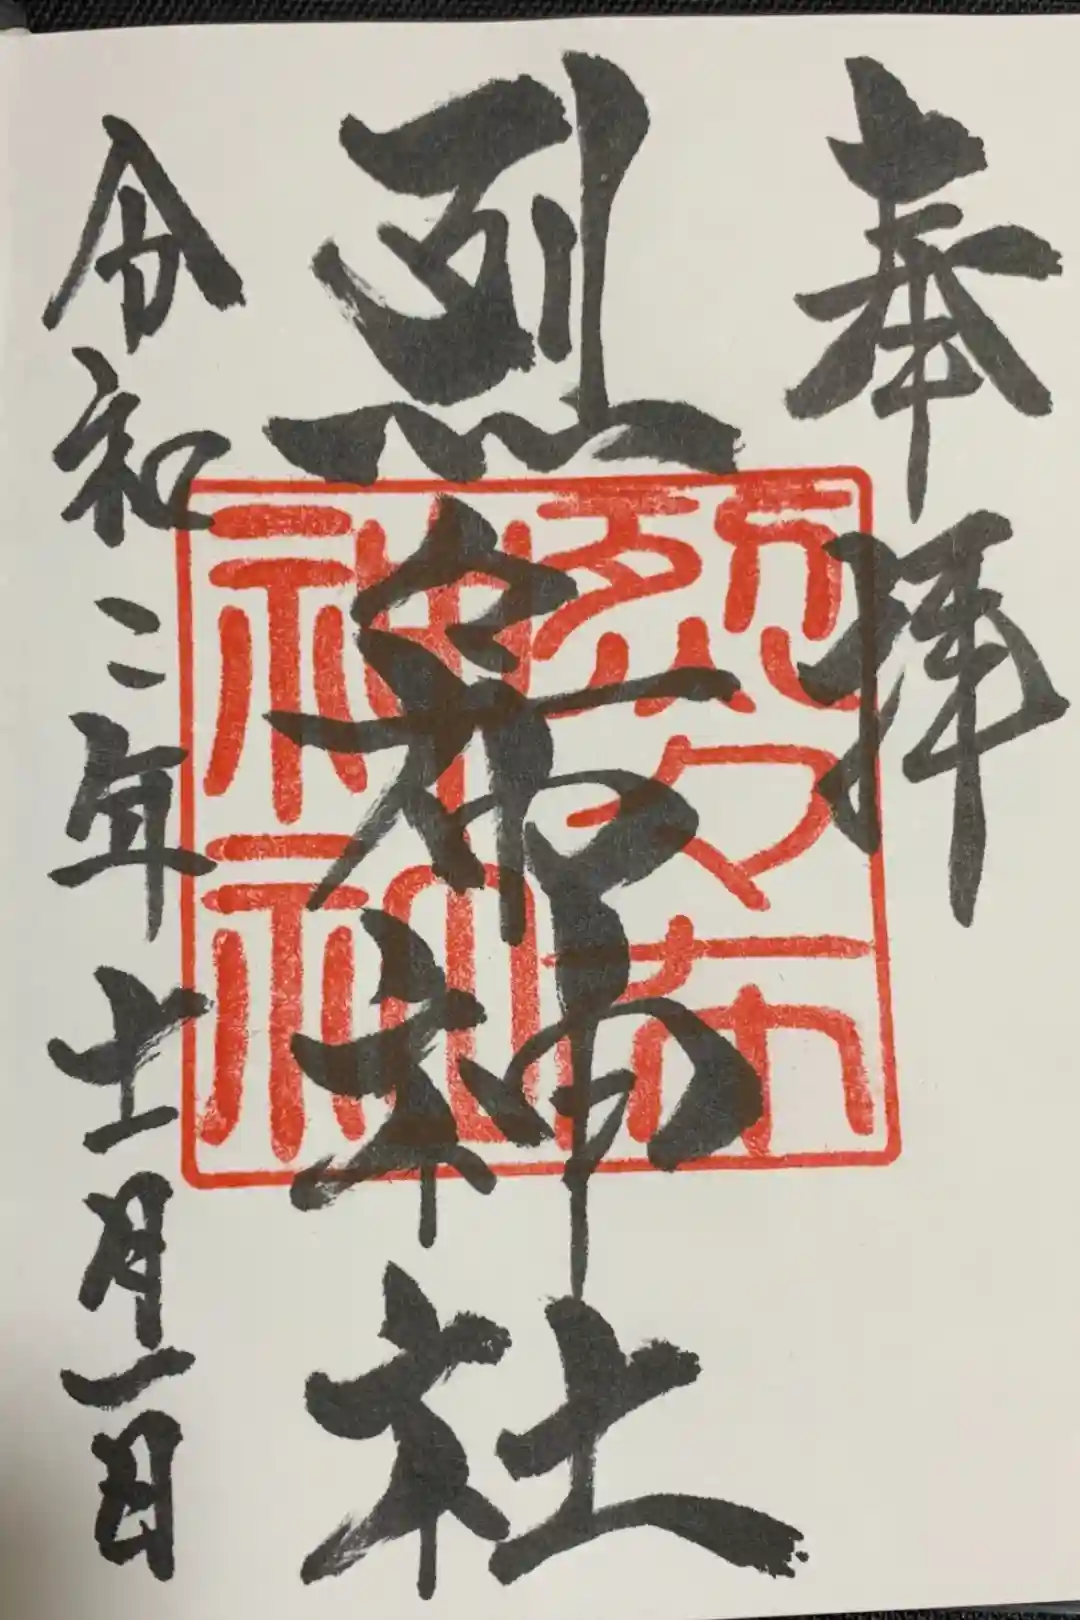 奉拝
烈々布神社
令和二年十一月一日
烈々布
神